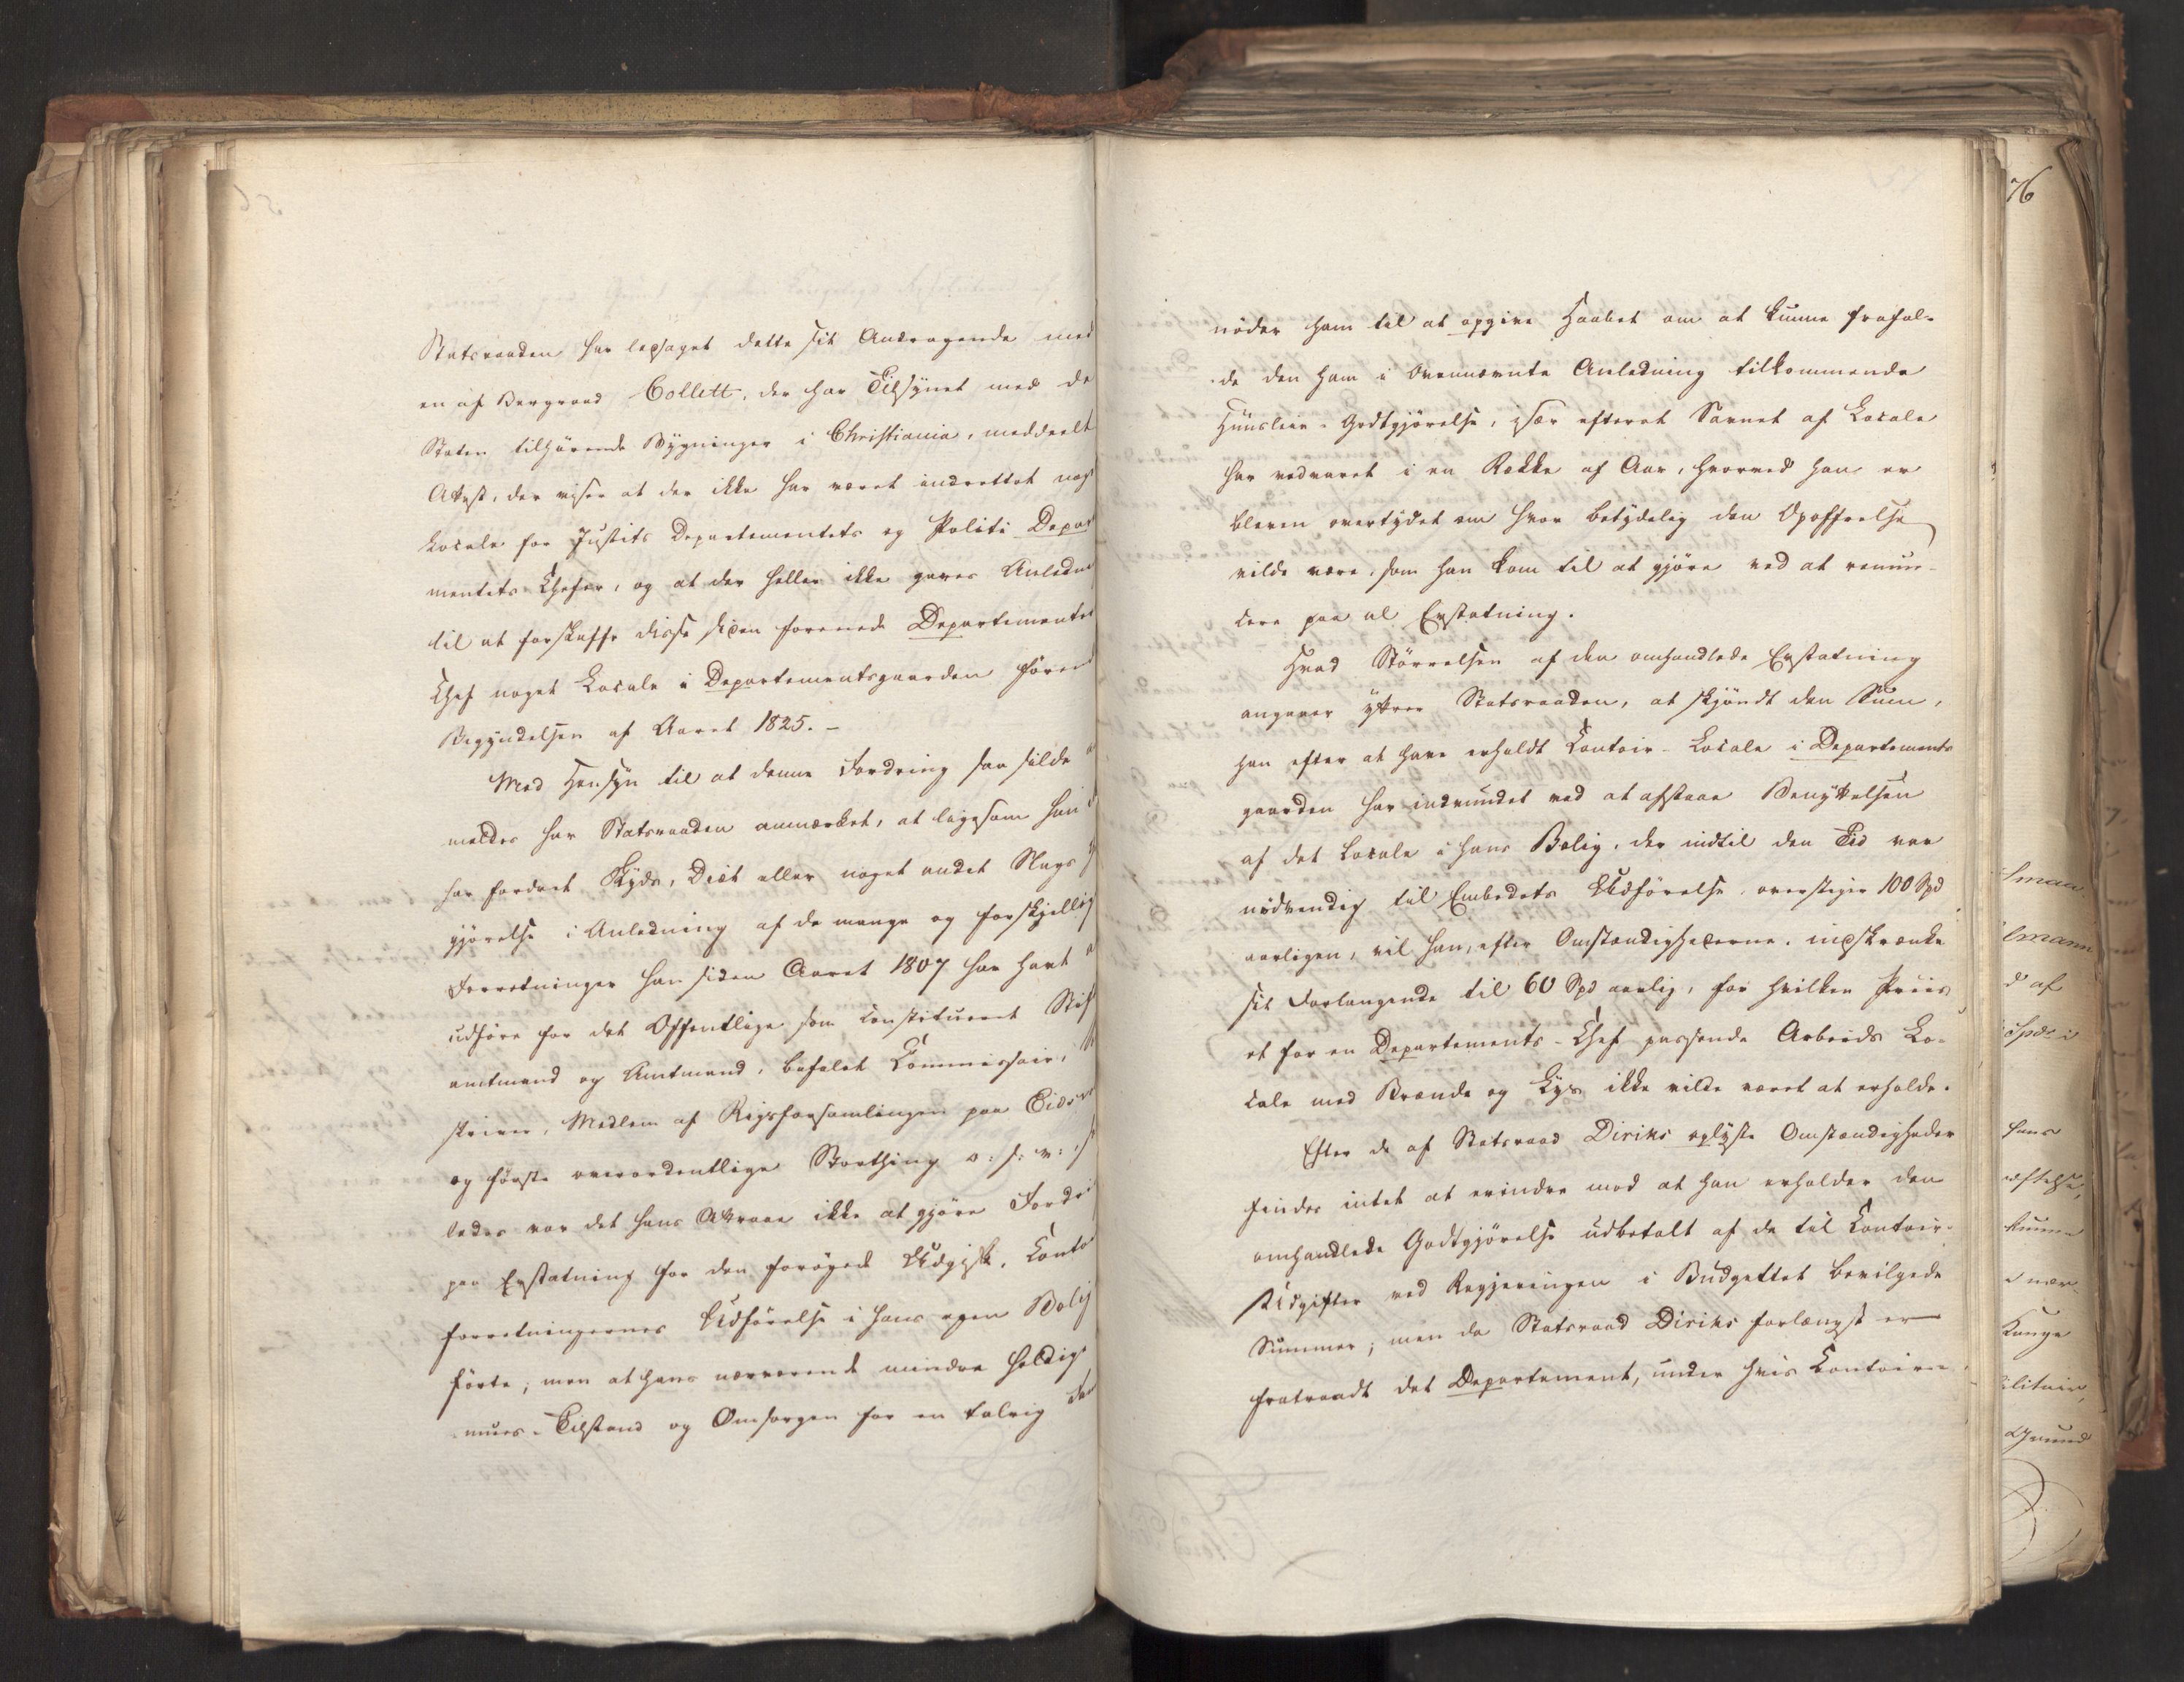 Statsraaden har ledsaget dette sit Andragende med
en af Bergraad Collett, der har Tilsÿnet med de
Staten tilhørende Bÿgninger i Christiania, meddeelt
Attest, der viser at der ikke har været indrettet noge
Locale for Justits Departementets og Politi Depar
mentets Chefer, og at der heller ikke gaves Anledni
til at forskaffe disse siden forenede Departementer
Chef noget Locale i Departementsgaarden førend
Begÿndelsen af Aaret 1825. -
Med Hensÿn til at denne Fordring saa silde a
meldes har Statsraaden anmærket, at ligesom han i
har fordret Skÿds, Diæt eller noget andet Slags G
gjørelse i Anledning af de mange og forskjellig
Forretninger han siden Aaret 1807 har havt a
udføre for det Offentlige som constitueret Stif
amtmand og Amtmand, befalet Commissair,
skriver, Medlem af Rigsforsamlingen paa Eidsvo
og første overordentlige Storthing o: s: v: , s
ledes var det hans Attraae ikke at gjøre Fordri
paa Erstatning for den forøgede Udgift, Conto
forretningernes Udførelse i hans egen Bolig
førte; men at hans nærværende mindre heldige
mues-Tilstand og Omsorgen for en talrig Fam
nøder ham til at opgive Haabet om at kunne frafal-
de den ham i Ovennævnte Anledning tilkommende
Huusleie-Godtgjørelse, især efterat Savnet af Locale
har vedvaret i en Række af Aar, hvorved han er
bleven overtÿdet om hvor betÿdelig den Opoffrelse
vilde være, som han kom til at gjøre ved at renun-
cere paa al Erstatning.
Hvad Størrelsen af den omhandlede Erstatning
angaaer ÿttrer Statsraaden, at skjøndt den Sum,
han efter at have erholdt Contoir-Locale i Departements
gaarden har indvundet ved at afstaae Benÿttelsen
af det Locale i hans Bolig, der indtil den Tid var
nødvendig til Embedets Udførelse, overstiger 100 Spd
aarligen, vil han, efter Omstændighederne, indskrænke
sit Forlangende til 60 Spd aarlig, for hvilken Priis
et for en Departements-Chef passende Arbeids Lo-
cale med Brænde og Lÿs ikke vilde været at erholde.
Efter de af Statsraad Diriks oplÿste Omstændigheder
findes intet at erindre mod at han erholder den
omhandlede Godtgjørelse udbetalt af de til Contoir-
Udgifter ved Regjeringen i Budgettet bevilgede
Summer; men da Statsraad Diriks forlængst er
fratraadt det Departement, under hvis Contoirer
76
lmann
d af
Spd i
hans
kunne
Konge
Grund